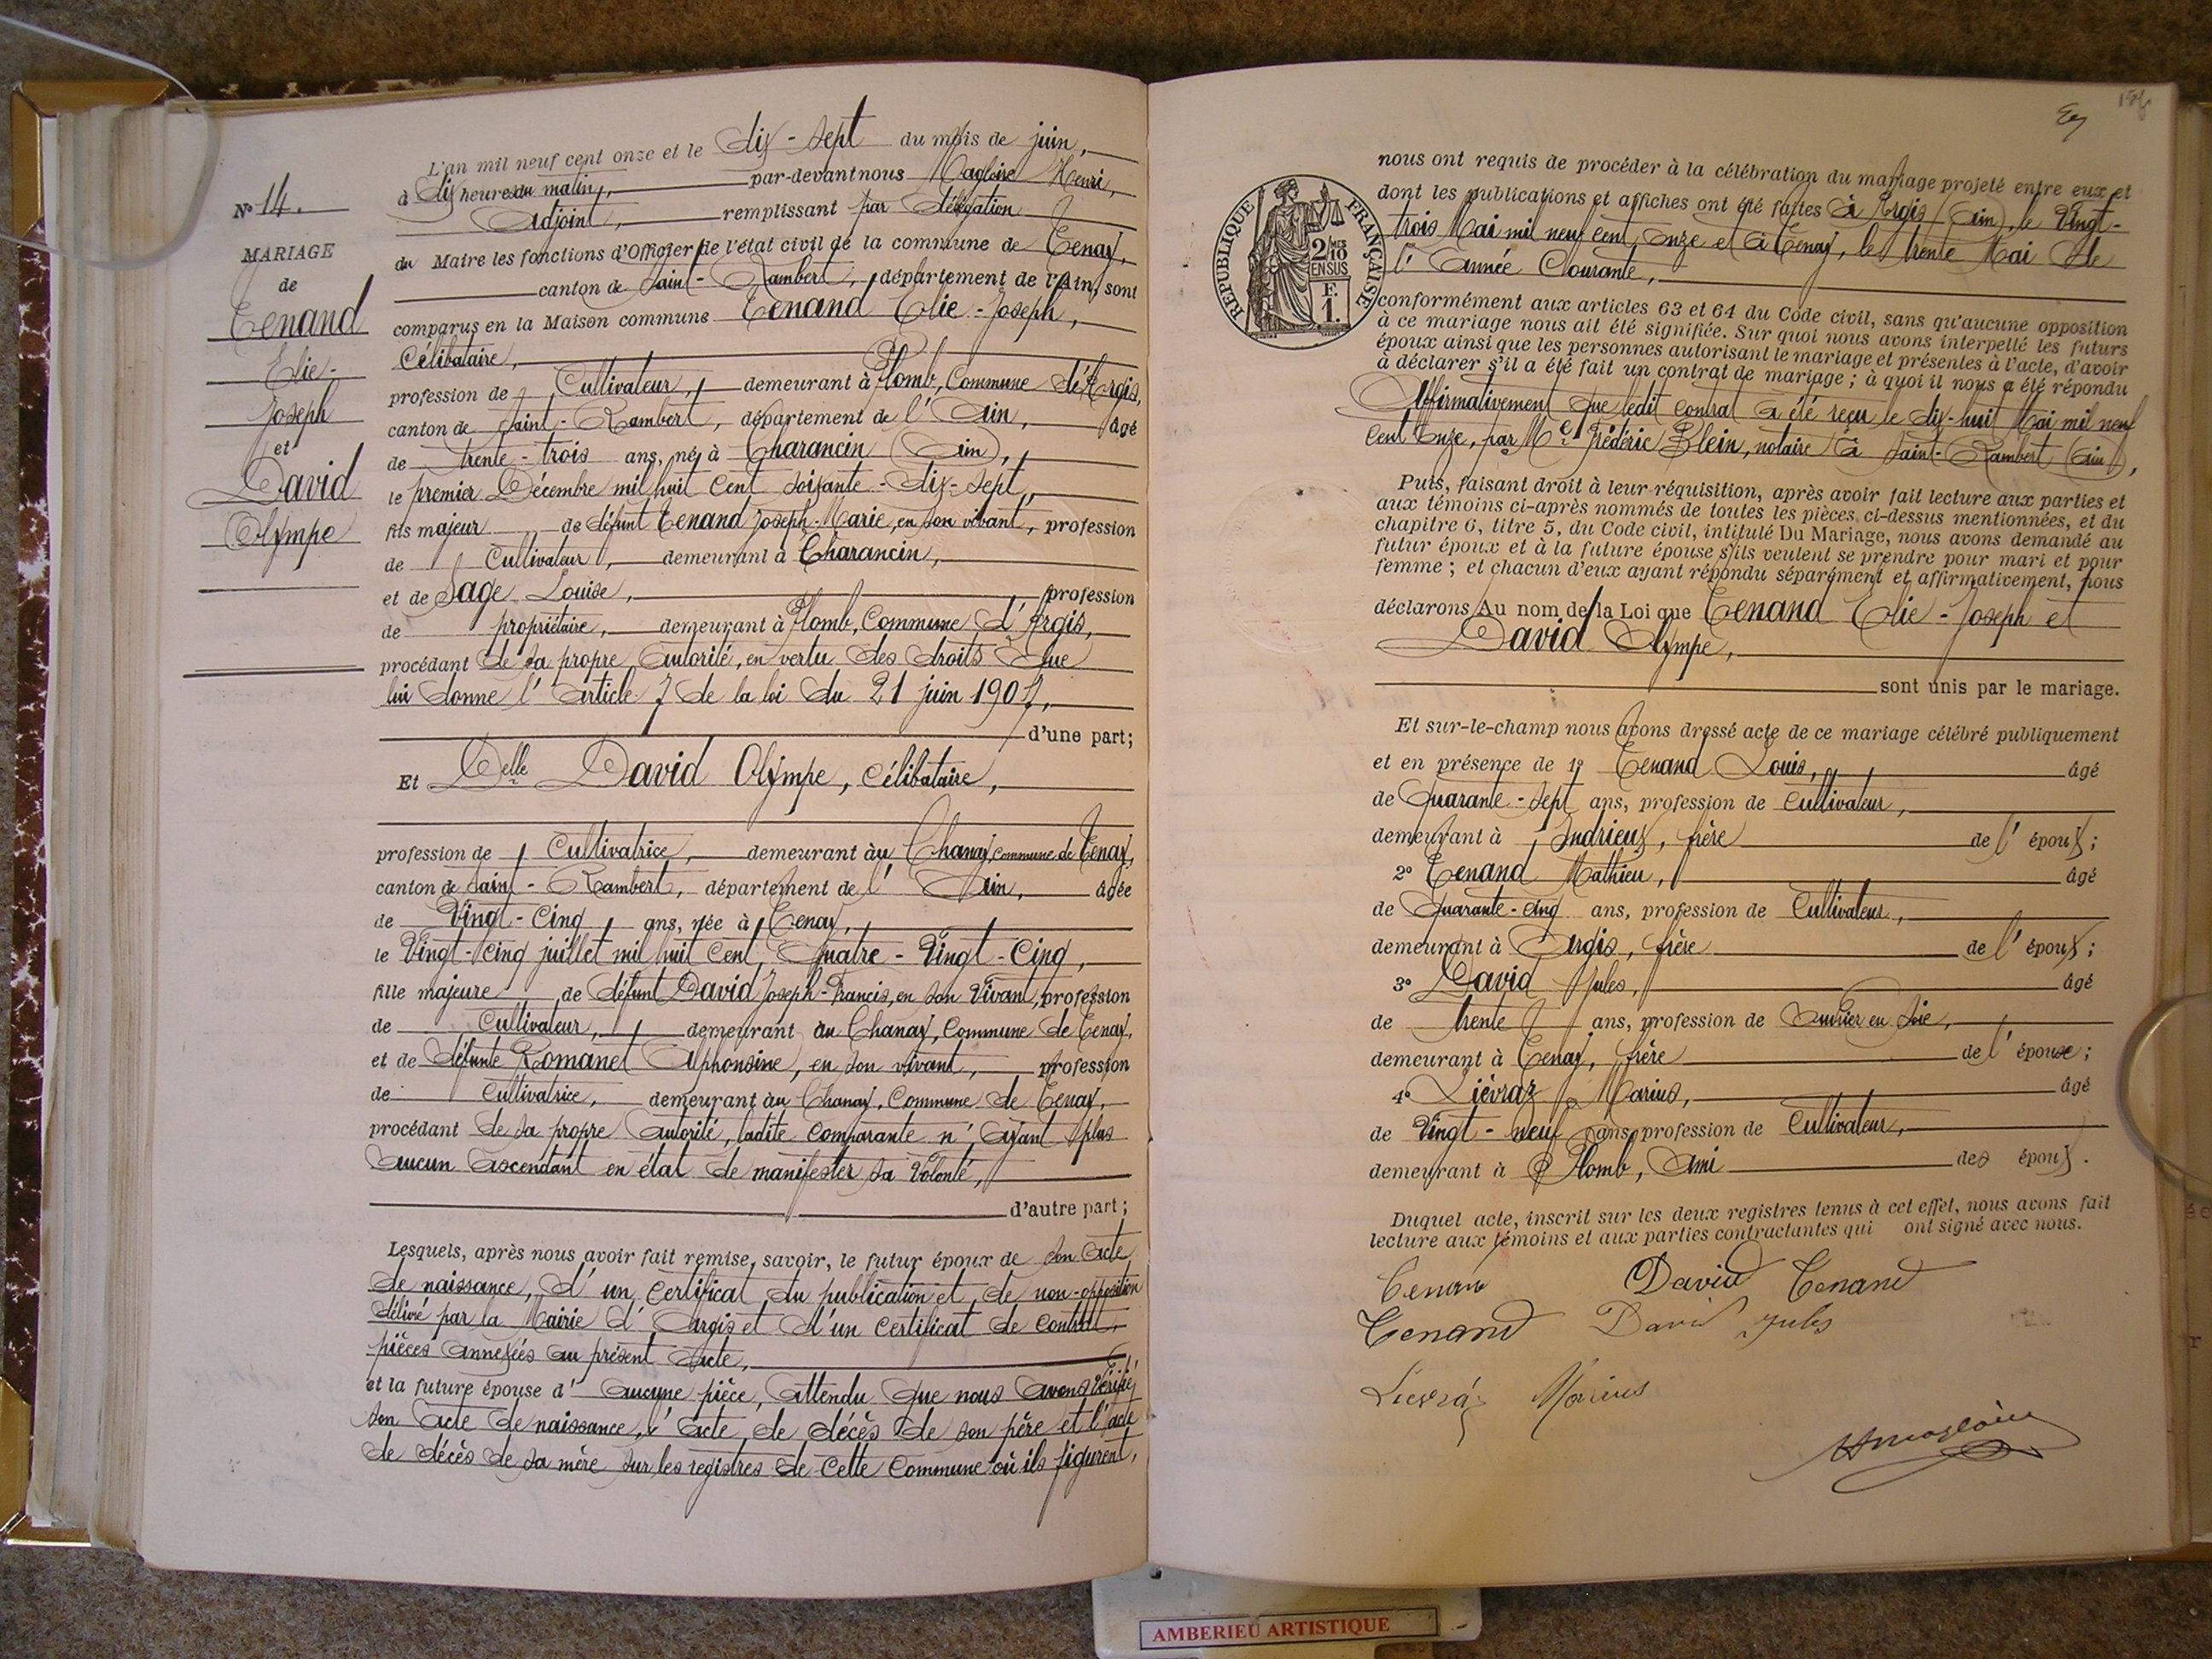 L'an mil neuf cent onze et le dix-sept du mois de juin,
à dix heures du matin, par-devant nous Magloire Henri,
Adjoint, remplissant par délégation
du Maire les fonctions d'Officier de l'état civil de la commune de Tenay,
canton de Saint-Rambert, département de l'Ain, sont
comparus en la Maison commune Tenand Elie-Joseph,
Célibataire,
profession de Cultivateur, demeurant à Plomb, Commune d'Argis,
canton de Saint-Rambert, département de l'Ain, âgé
de trente-trois ans, né à Charancin (Ain),
le premier Décembre mil huit cent soixante-dix-sept,
fils majeur de défunt Tenand Joseph-Marie, en son vivant, profession
de Cultivateur, demeurant à Charancin,
et de Sage Louise, profession
de propriétaire, demeurant à Plomb, Commune d'Argis,
procédant de sa propre autorité, en vertu des droits que
lui donne l'article 7 de la loi du 21 juin 1907,
d'une part;
Et Delle David Olympe, Célibataire,
profession de Cultivatrice, demeurant au Chanay, commune de Tenay,
canton de Saint-Rambert, département de l'Ain, âgée
de Vingt-Cinq ans, née à Tenay,
le Vingt-Cinq juillet mil huit cent Quatre-Vingt-Cinq,
fille majeure de défunt David Joseph-Francis, en son Vivant, profession
de Cultivateur, demeurant au Chanay, Commune de Tenay,
et de défunte Romanet Alphonsine, en son vivant, profession
de Cultivatrice, demeurant au Chanay, Commune de Tenay,
procédant de sa propre autorité, ladite Comparante n'ayant plus
aucun ascendant en état de manifester sa Volonté,
d'autre part;
Lesquels, après nous avoir fait remise, savoir, le futur époux de son acte
de naissance, d'un certificat du publication et de non-opposition
délivré par la Mairie d'Argis et d'un certificat de contrat,
pièces annexées au présent acte,
et la future épouse d'aucune pièce, attendu que nous avons Vérifié
son acte de naissance, l'acte de décès de son père et l'acte
de décès de sa mère sur les registres de Cette Commune où ils figurent,
No 14.
MARIAGE
de
Tenand
Elie-
Joseph
et
David
Olympe
RÉPUBLIQUE FRANÇAISE
2/10
EN SUS
F.
1.
nous ont requis de procéder à la célébration du mariage projeté entre eux et
dont les publications et affiches ont été faites à Argis (Ain), le Vingt-
trois Mai mil neuf Cent onze et à Tenay, le trente Mai de
l'année Courante,
conformément aux articles 63 et 64 du Code civil, sans qu'aucune opposition
à ce mariage nous ait été signifiée. Sur quoi nous avons interpellé les futurs
époux ainsi que les personnes autorisant le mariage et présentes à l'acte, d'avoir
à déclarer s'il a été fait un contrat de mariage; à quoi il nous a été répondu
Affirmativement que ledit contrat a été reçu le dix-huit Mai mil neuf
Cent Onze, par Me Frédéric Blein, notaire à Saint-Rambert (Ain),
Puis, faisant droit à leur réquisition, après avoir fait lecture aux parties et
aux témoins ci-après nommés de toutes les pièces ci-dessus mentionnées, et du
chapitre 6, titre 5, du Code civil, intitulé Du Mariage, nous avons demandé au
futur époux et à la future épouse s'ils veulent se prendre pour mari et pour
femme; et chacun d'eux ayant répondu séparément et affirmativement, nous
déclarons Au nom de la Loi que Tenand Elie-Joseph et
David Olympe,
sont unis par le mariage.
Et sur-le-champ nous avons dressé acte de ce mariage célébré publiquement
et en présence de 1º Tenand Louis, âgé
de Quarante-sept ans, profession de Cultivateur,
demeurant à Indrieux, frère de l'époux;
2º Tenand Mathieu, âgé
de Quarante-cinq ans, profession de Cultivateur,
demeurant à Argis, frère de l'époux;
3º David Jules, âgé
de trente ans, profession de Ouvrier en soie,
demeurant à Tenay, frère de l'épouse;
4º Liévraz Marius, âgé
de Vingt-Neuf ans, profession de Cultivateur,
demeurant à Plomb, Ami des époux.
Duquel acte, inscrit sur les deux registres tenus à cet effet, nous avons fait
lecture aux témoins et aux parties contractantes qui ont signé avec nous.
Tenand David Tenand
Tenand David Jules
Marius
Hmagloire
AMBERIEU ARTISTIQUE